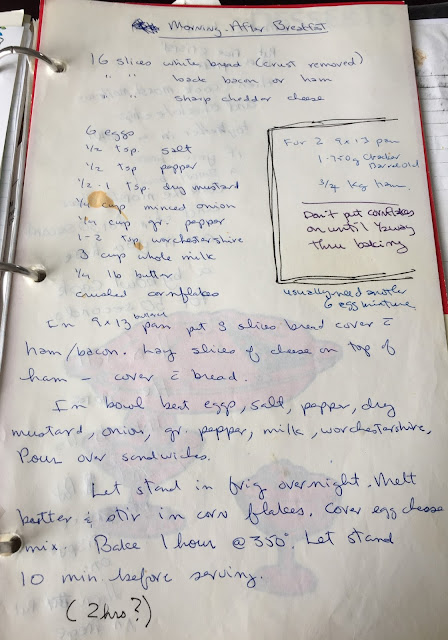 Morning After Breakfast
16 slices white bread (crust removed)
" " back bacon or ham
" " sharp cheddar cheese
6 eggs
1/2 tsp. salt
1/2 tsp pepper
1/2-1 tsp. dry mustard
1/4 cup minced onion
1/4 cup gr. pepper
1-2 tsp. worchestershire
3 cup whole milk
1/4 lb butter
crushed cornflakes
For 2 9x13 pan
1-750g Cracker
Barrel Old
3/4 kg ham.
Don't put cornflakes
on until 1/2way
thru baking
usually need another
6 egg mixture
In 9x13 buttered pan put 8 slices bread cover c̄
ham/bacon. Lay slices of cheese on top of
ham - cover c̄ bread.
In bowl beat eggs, salt, pepper, dry
mustard, onion, gr. pepper, milk, worchestershire.
Pour over sandwiches.
Let stand in frig overnight. Melt
butter & stir in corn flakes. Cover egg cheese
mix. Bake 1 hour @ 350°. Let stand
10 min. before serving.
(2hrs?)